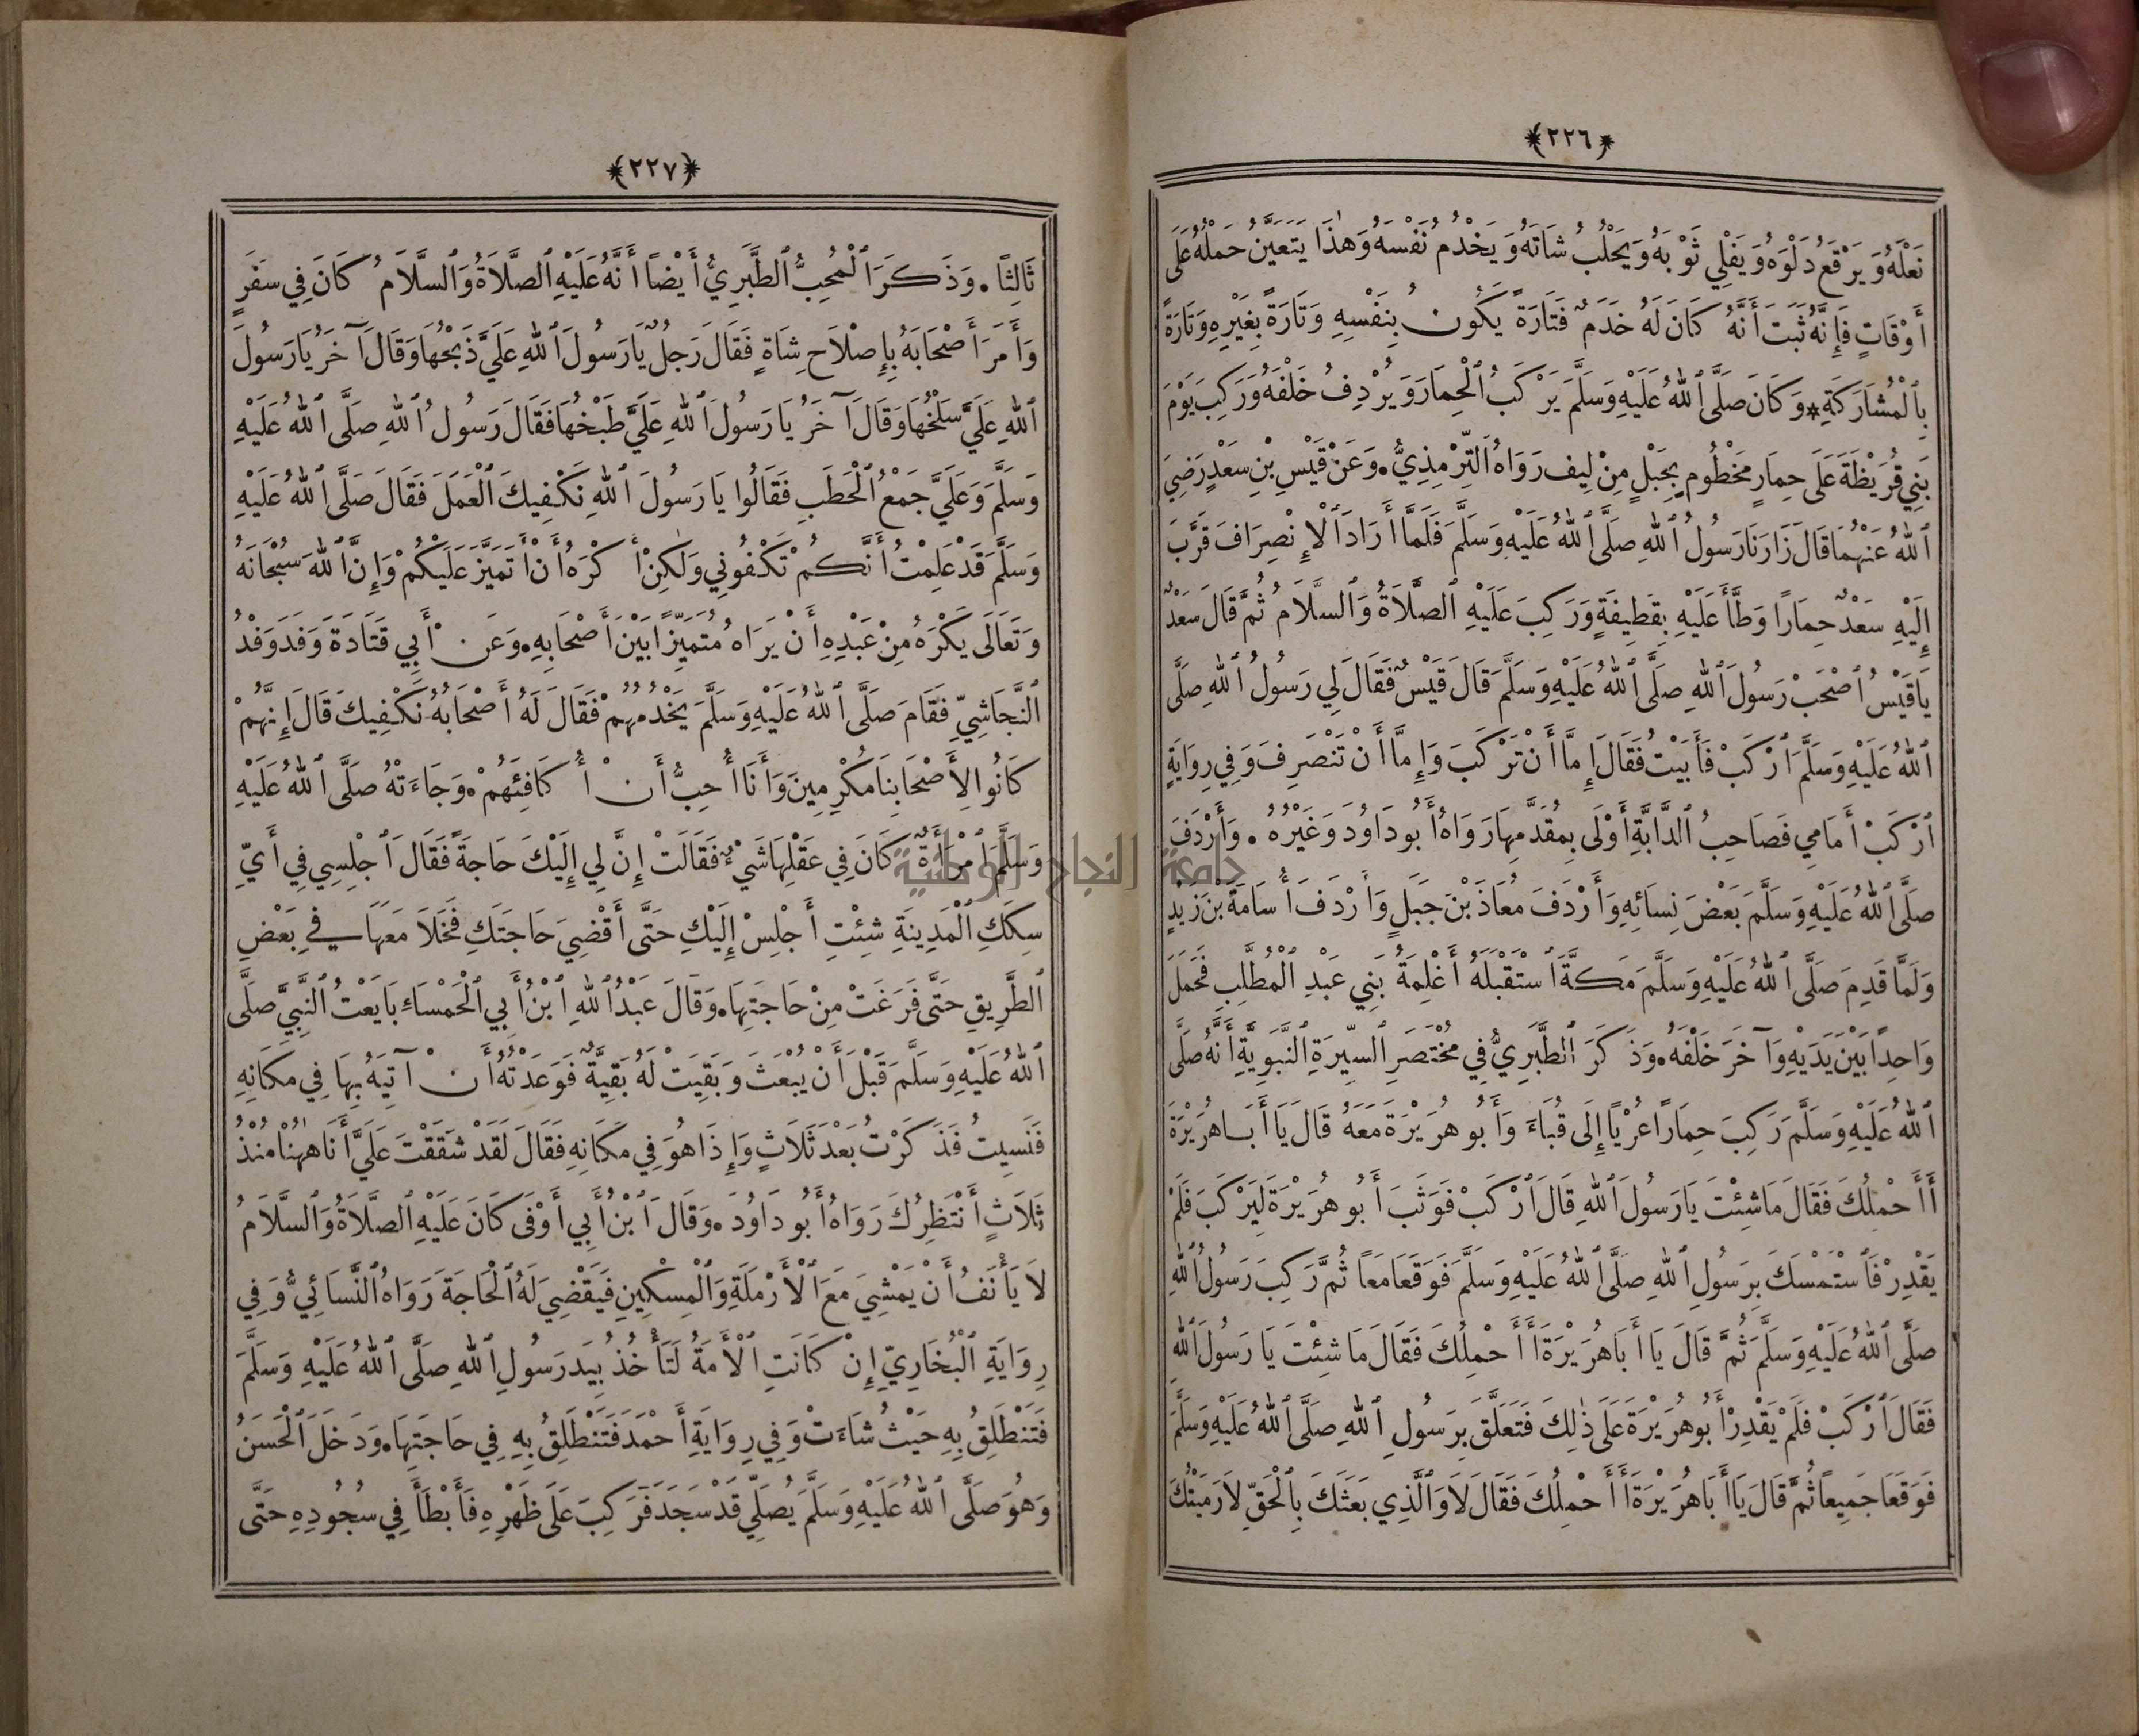 ﴿٢٢٦﴾
نَعْلَهُ وَيَرْقَعُ دَلْوَهُ وَيَفْلِي ثَوْبَهُ وَيَحْلُبُ شَاتَهُ وَيَخْدُمُ نَفْسَهُ وَهٰذَا يَتَعَيَّنُ حَمْلُهُ عَلَى
أَوْقَاتٍ فَإِنَّهُ ثَبَتَ أَنَّهُ كَانَ لَهُ خَدَمٌ فَتَارَةً يَكُونُ بِنَفْسِهِ وَتَارَةً بِغَيْرِهِ وَتَارَةً
بِٱلْمُشَارَكَةِ * وَكَانَ صَلَّى ٱللهُ عَلَيْهِ وَسَلَّمَ يَرْكَبُ ٱلْحِمَارَ وَيُرْدِفُ خَلْفَهُ وَرَكِبَ يَوْمَ
بَنِي قُرَيْظَةَ عَلَى حِمَارٍ مَخْطُومٍ بِحَبْلٍ مِنْ لِيفٍ رَوَاهُ ٱلتِّرْمِذِيُّ. وَعَنْ قَيْسِ بْنِ سَعْدٍ رَضِيَ
ٱللهُ عَنْهُمَا قَالَ زَارَنَا رَسُولُ ٱللهِ صَلَّى ٱللهُ عَلَيْهِ وَسَلَّمَ فَلَمَّا أَرَادَ ٱلْإِنْصِرَافَ قَرَّبَ
إِلَيْهِ سَعْدٌ حِمَارًا وَطَّأَ عَلَيْهِ بِقَطِيفَةٍ وَرَكِبَ عَلَيْهِ ٱلصَّلَاةُ وَٱلسَّلَامُ ثُمَّ قَالَ سَعْدٌ
يَا قَيْسُ ٱصْحَبْ رَسُولَ ٱللهِ صَلَّى ٱللهُ عَلَيْهِ وَسَلَّمَ قَالَ قَيْسٌ فَقَالَ لِي رَسُولُ ٱللهِ صَلَّى
ٱللهُ عَلَيْهِ وَسَلَّمَ ٱرْكَبْ فَأَبَيْتُ فَقَالَ إِمَّا أَنْ تَرْكَبَ وَإِمَّا أَنْ تَنْصَرِفَ وَفِي رِوَايَةٍ
ٱرْكَبْ أَمَامِي فَصَاحِبُ ٱلدَّابَّةِ أَوْلَى بِمُقَدَّمِهَا رَوَاهُ أَبُو دَاوُدَ وَغَيْرُهُ. وَأَرْدَفَ
صَلَّى ٱللهُ عَلَيْهِ وَسَلَّمَ بَعْضَ نِسَائِهِ وَأَرْدَفَ مُعَاذَ بْنَ جَبَلٍ وَأَرْدَفَ أُسَامَةَ بْنَ زَيْدٍ
وَلَمَّا قَدِمَ صَلَّى ٱللهُ عَلَيْهِ وَسَلَّمَ مَكَّةَ ٱسْتَقْبَلَهُ أُغَيْلِمَةُ بَنِي عَبْدِ ٱلْمُطَّلِبِ فَحَمَلَ
وَاحِدًا بَيْنَ يَدَيْهِ وَآخَرَ خَلْفَهُ. وَذَكَرَ ٱلطَّبَرِيُّ فِي مُخْتَصَرِ ٱلسِّيرَةِ ٱلنَّبَوِيَّةِ أَنَّهُ صَلَّى
ٱللهُ عَلَيْهِ وَسَلَّمَ رَكِبَ حِمَارًا عُرْيًا إِلَى قُبَاءَ وَأَبُو هُرَيْرَةَ مَعَهُ قَالَ يَا أَبَا هُرَيْرَةَ
أَأَحْمِلُكَ فَقَالَ مَا شِئْتَ يَا رَسُولَ ٱللهِ قَالَ ٱرْكَبْ فَوَثَبَ أَبُو هُرَيْرَةَ لِيَرْكَبَ فَلَمْ
يَقْدِرْ فَٱسْتَمْسَكَ بِرَسُولِ ٱللهِ صَلَّى ٱللهُ عَلَيْهِ وَسَلَّمَ فَوَقَعَا مَعًا ثُمَّ رَكِبَ رَسُولُ ٱللهِ
صَلَّى ٱللهُ عَلَيْهِ وَسَلَّمَ ثُمَّ قَالَ يَا أَبَا هُرَيْرَةَ أَأَحْمِلُكَ فَقَالَ مَا شِئْتَ يَا رَسُولَ ٱللهِ
فَقَالَ ٱرْكَبْ فَلَمْ يَقْدِرْ أَبُو هُرَيْرَةَ عَلَى ذٰلِكَ فَتَعَلَّقَ بِرَسُولِ ٱللهِ صَلَّى ٱللهُ عَلَيْهِ وَسَلَّمَ
فَوَقَعَا جَمِيعًا ثُمَّ قَالَ يَا أَبَا هُرَيْرَةَ أَأَحْمِلُكَ فَقَالَ لَا وَٱلَّذِي بَعَثَكَ بِٱلْحَقِّ لَا رَمَيْتُكَ
﴿٢٢٧﴾
ثَالِثًا. وَذَكَرَ ٱلْمُحِبُّ ٱلطَّبَرِيُّ أَيْضًا أَنَّهُ عَلَيْهِ ٱلصَّلَاةُ وَٱلسَّلَامُ كَانَ فِي سَفَرٍ
وَأَمَرَ أَصْحَابَهُ بِإِصْلَاحِ شَاةٍ فَقَالَ رَجُلٌ يَا رَسُولَ ٱللهِ عَلَيَّ ذَبْحُهَا وَقَالَ آخَرُ يَا رَسُولَ
ٱللهِ عَلَيَّ سَلْخُهَا وَقَالَ آخَرُ يَا رَسُولَ ٱللهِ عَلَيَّ طَبْخُهَا فَقَالَ رَسُولُ ٱللهِ صَلَّى ٱللهُ عَلَيْهِ
وَسَلَّمَ وَعَلَيَّ جَمْعُ ٱلْحَطَبِ فَقَالُوا يَا رَسُولَ ٱللهِ نَكْفِيكَ ٱلْعَمَلَ فَقَالَ صَلَّى ٱللهُ عَلَيْهِ
وَسَلَّمَ قَدْ عَلِمْتُ أَنَّكُمْ تَكْفُونِي وَلٰكِنْ أَكْرَهُ أَنْ أَتَمَيَّزَ عَلَيْكُمْ وَإِنَّ ٱللهَ سُبْحَانَهُ
وَتَعَالَى يَكْرَهُ مِنْ عَبْدِهِ أَنْ يَرَاهُ مُتَمَيِّزًا بَيْنَ أَصْحَابِهِ. وَعَنْ أَبِي قَتَادَةَ وَفَدَ وَفْدُ
ٱلنَّجَاشِيِّ فَقَامَ صَلَّى ٱللهُ عَلَيْهِ وَسَلَّمَ يَخْدُمُهُمْ فَقَالَ لَهُ أَصْحَابُهُ نَكْفِيكَ قَالَ إِنَّهُمْ
كَانُوا لِأَصْحَابِنَا مُكْرِمِينَ وَأَنَا أُحِبُّ أَنْ أُكَافِئَهُمْ. وَجَاءَتْهُ صَلَّى ٱللهُ عَلَيْهِ
وَسَلَّمَ ٱمْرَأَةٌ كَانَ فِي عَقْلِهَا شَيْءٌ فَقَالَتْ إِنَّ لِي إِلَيْكَ حَاجَةً فَقَالَ ٱجْلِسِي فِي أَيِّ
سِكَكِ ٱلْمَدِينَةِ شِئْتِ أَجْلِسْ إِلَيْكِ حَتَّى أَقْضِيَ حَاجَتَكِ فَخَلَا مَعَهَا فِي بَعْضِ
ٱلطَّرِيقِ حَتَّى فَرَغَتْ مِنْ حَاجَتِهَا. وَقَالَ عَبْدُ ٱللهِ ٱبْنُ أَبِي ٱلْحَمْسَاءِ بَايَعْتُ ٱلنَّبِيَّ صَلَّى
ٱللهُ عَلَيْهِ وَسَلَّمَ قَبْلَ أَنْ يُبْعَثَ وَبَقِيَتْ لَهُ بَقِيَّةٌ فَوَعَدْتُهُ أَنْ آتِيَهُ بِهَا فِي مَكَانِهِ
فَنَسِيتُ فَذَكَرْتُ بَعْدَ ثَلَاثٍ وَإِذَا هُوَ فِي مَكَانِهِ فَقَالَ لَقَدْ شَقَقْتَ عَلَيَّ أَنَا هٰهُنَا مُنْذُ
ثَلَاثٍ أَنْتَظِرُكَ رَوَاهُ أَبُو دَاوُدَ. وَقَالَ ٱبْنُ أَبِي أَوْفَى كَانَ عَلَيْهِ ٱلصَّلَاةُ وَٱلسَّلَامُ
لَا يَأْنَفُ أَنْ يَمْشِيَ مَعَ ٱلْأَرْمَلَةِ وَٱلْمِسْكِينِ فَيَقْضِيَ لَهُ ٱلْحَاجَةَ رَوَاهُ ٱلنَّسَائِيُّ وَفِي
رِوَايَةِ ٱلْبُخَارِيِّ إِنْ كَانَتِ ٱلْأَمَةُ لَتَأْخُذُ بِيَدِ رَسُولِ ٱللهِ صَلَّى ٱللهُ عَلَيْهِ وَسَلَّمَ
فَتَنْطَلِقُ بِهِ حَيْثُ شَاءَتْ وَفِي رِوَايَةِ أَحْمَدَ فَتَنْطَلِقُ بِهِ فِي حَاجَتِهَا. وَدَخَلَ ٱلْحَسَنُ
وَهُوَ صَلَّى ٱللهُ عَلَيْهِ وَسَلَّمَ يُصَلِّي قَدْ سَجَدَ فَرَكِبَ عَلَى ظَهْرِهِ فَأَبْطَأَ فِي سُجُودِهِ حَتَّى
جامعة النجاح الوطنية